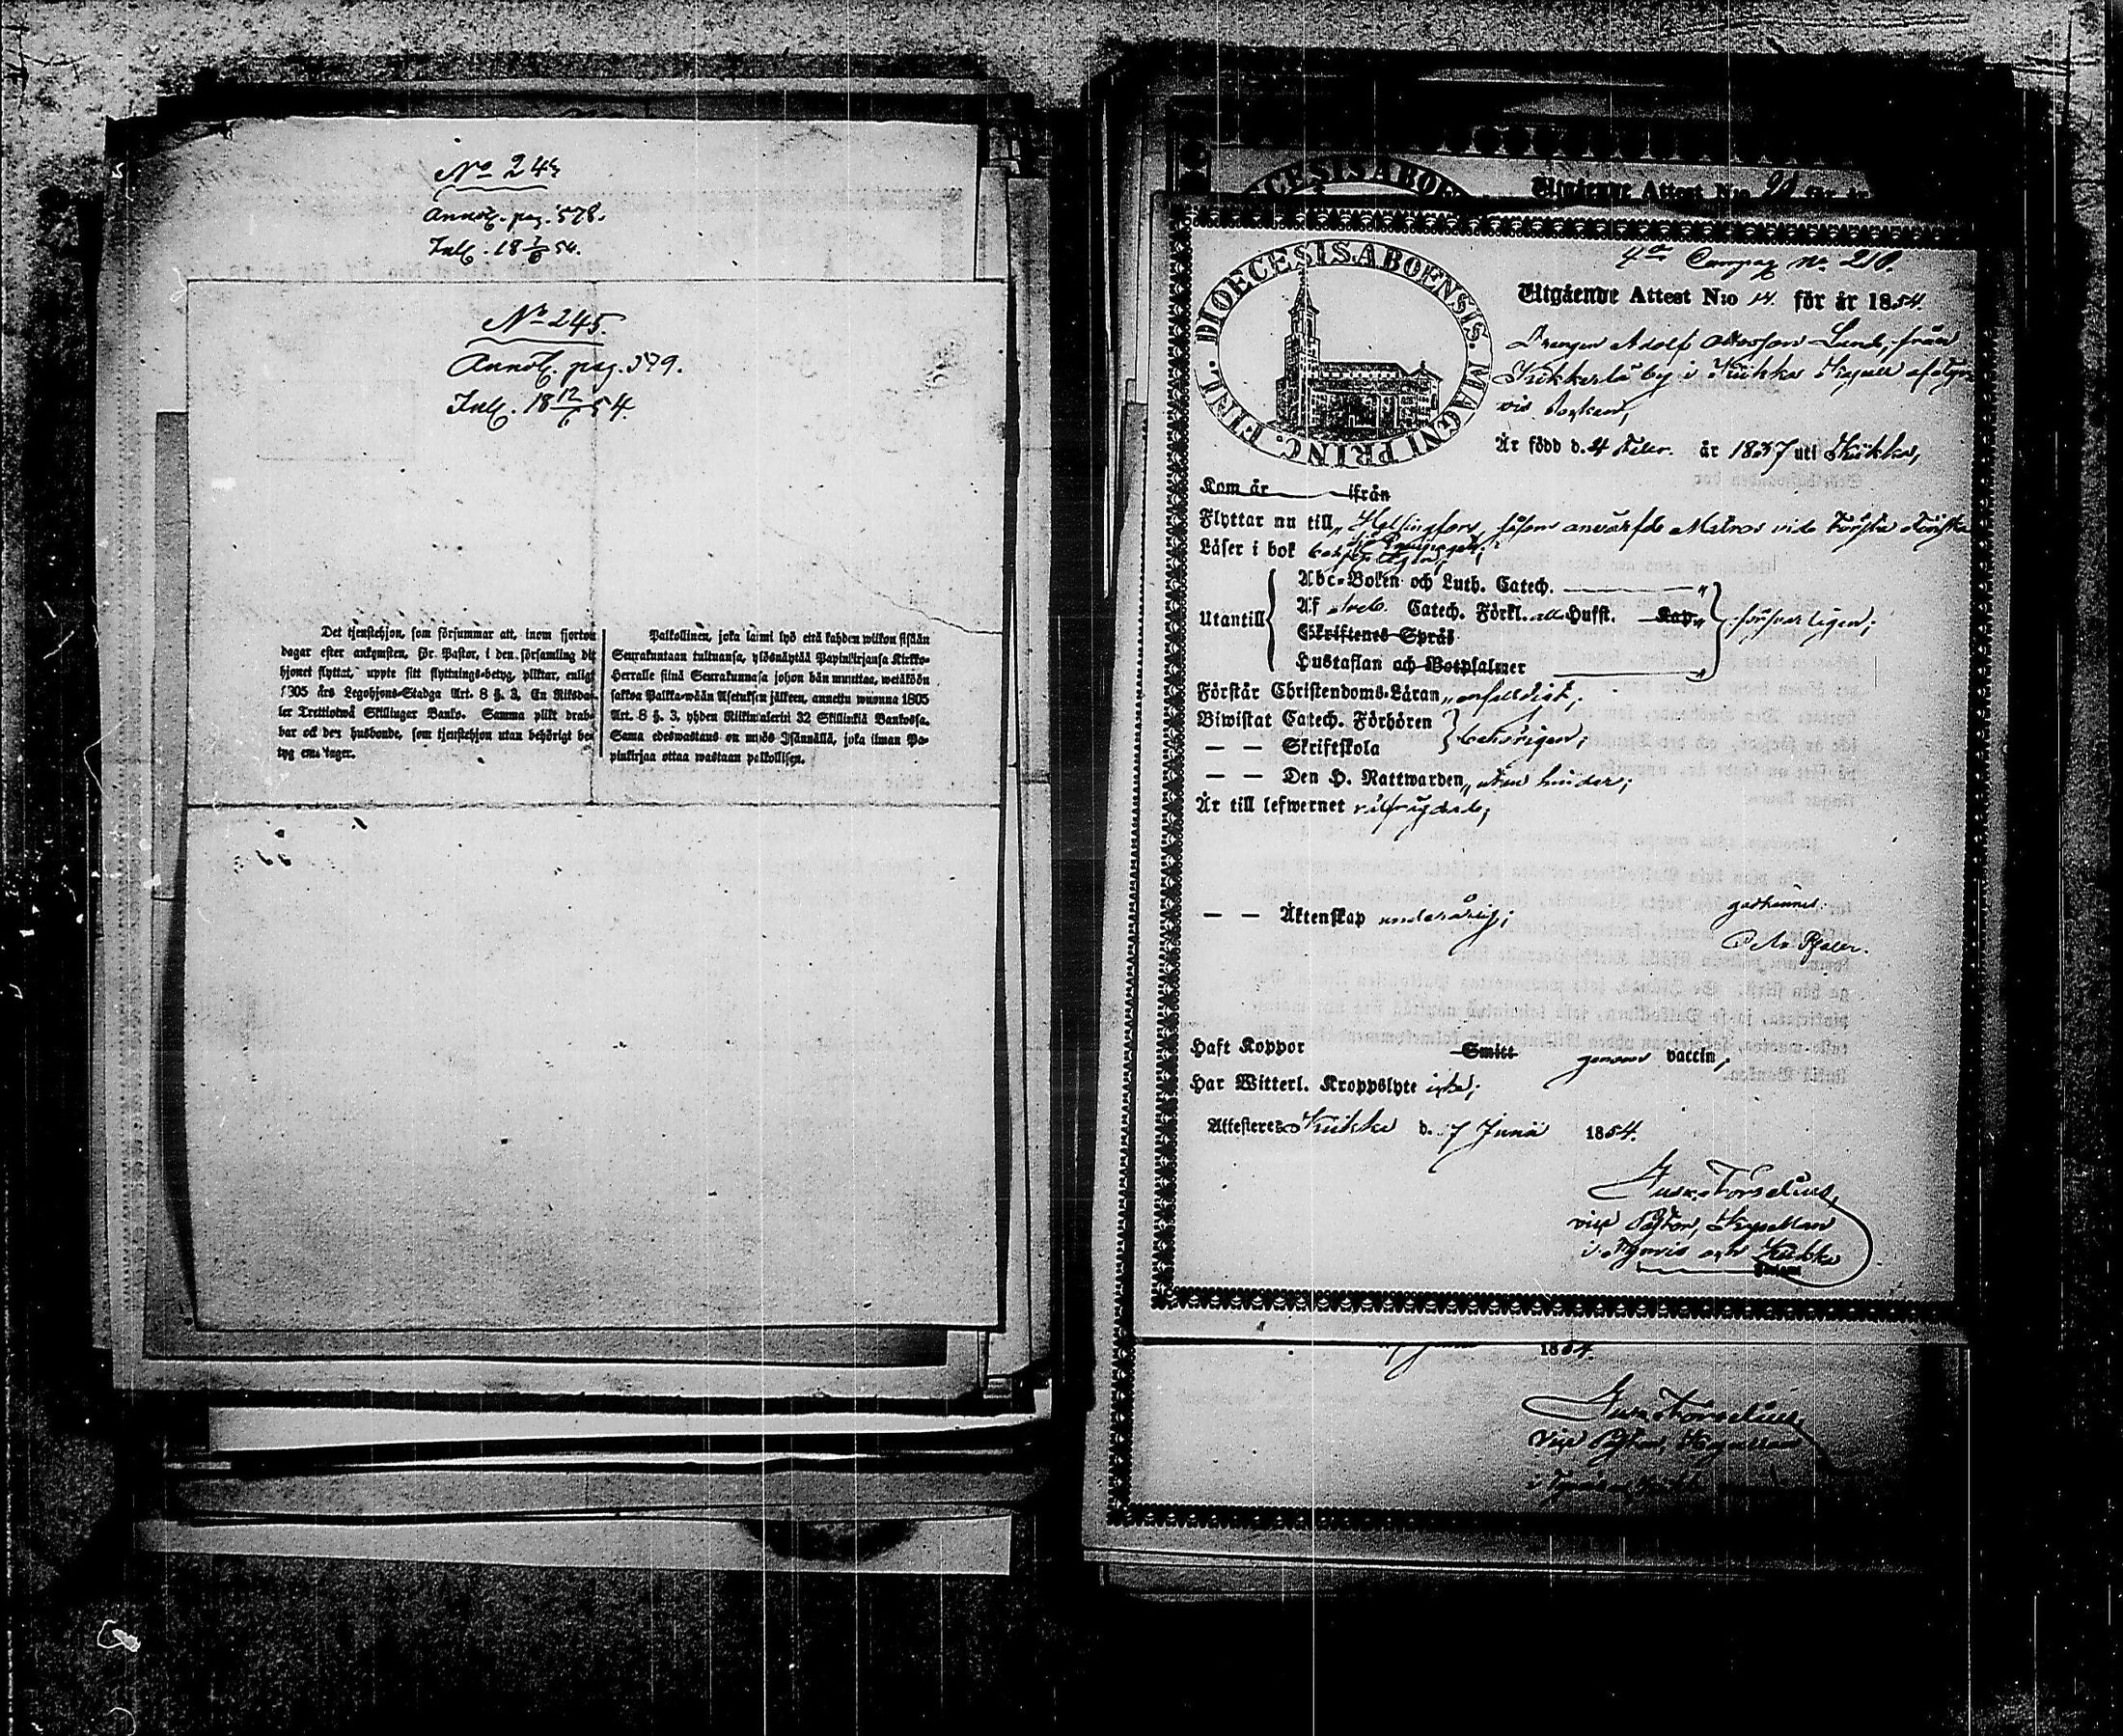 No 244
Annot. pag. 578.
Inl. 18 7/6 54.
No 245.
Annot. pag. 579.
Inl. 18 12/6 54.
Det tjenstehjon, som försummar att, inom fjorton
dagar efter ankomsten, för Pastor, i den församling dit
hjonet flyttat, uppte sitt flyttnings-betyg, pliktar, enligt
1805 års Legohjons-Stadga Art. 8 §. 3. En Riksda-
ler Trettiotwå Skillingar Banko. Samma plikt drab-
bar ock den husbonde, som tjenstehjon utan behörigt be-
tyg emottager.
Palkollinen, joka laimi lyö että kahden wiikon sisään
Seurakuntaan tultuansa, ylösnäyttää Papinkirjansa Kirkko-
Herralle siinä Seurakunnasa johon hän muuttaa, wetäköön
sakkoa Palkka-wään Asetuksen jälkeen, annettu wuonna 1805
Art. 8 §. 3. yhden Riikintalerin 32 Skillinkiä Bankossa.
Sama edeswastaus on myös Isännällä, joka ilman Pa-
pinkirjaa ottaa wastaan palkollisen.
DIOECESIS ABOEN
Utgående Attest N:o 20 för år
4de Compag No 210.
DIOECESIS ABOENSIS. MAGNI PRINC. FINL.
Utgående Attest N:o 14. för år 1854.
Drengen Adolf Ottosson Lind, från
by i Kiikka Kapell af Tyr-
vis Socken,
Är född d. 4 Febr. år 1837 uti Kiikka,
Kom år ifrån
Flyttar nu till Helsingfors, såsom anvärfde Matros vide Första Finska
Sjö Equipaget;
Läser i bok
Abc-Boken och Luth. Catech.
Utantill Af Sveb. Catech. Förkl. Husst. Kap. försvarligen;
Skriftenes Språk
Hustaflan och Botpsalmer
Förstår Christendoms-Läran enfaldigt;
Biwistat Catech. Förhören behörigen;
— — Skriftskola
— — Den H. Nattwarden utan hinder;
Är till lefwernet välfrejdad;
— — Äktenskap underårig;
godkännes.
Haft Koppor Smitt genom vaccin,
Har Witterl. Kroppslyte icke;
Attesteres Kiikka d. 7 Junii 1854.
Gust. Forselius,
vice Pastor, Kapellan
i Tyrvis och Kiikka
1854.
Gust. Forselius
Vice Pastor, Kapellan